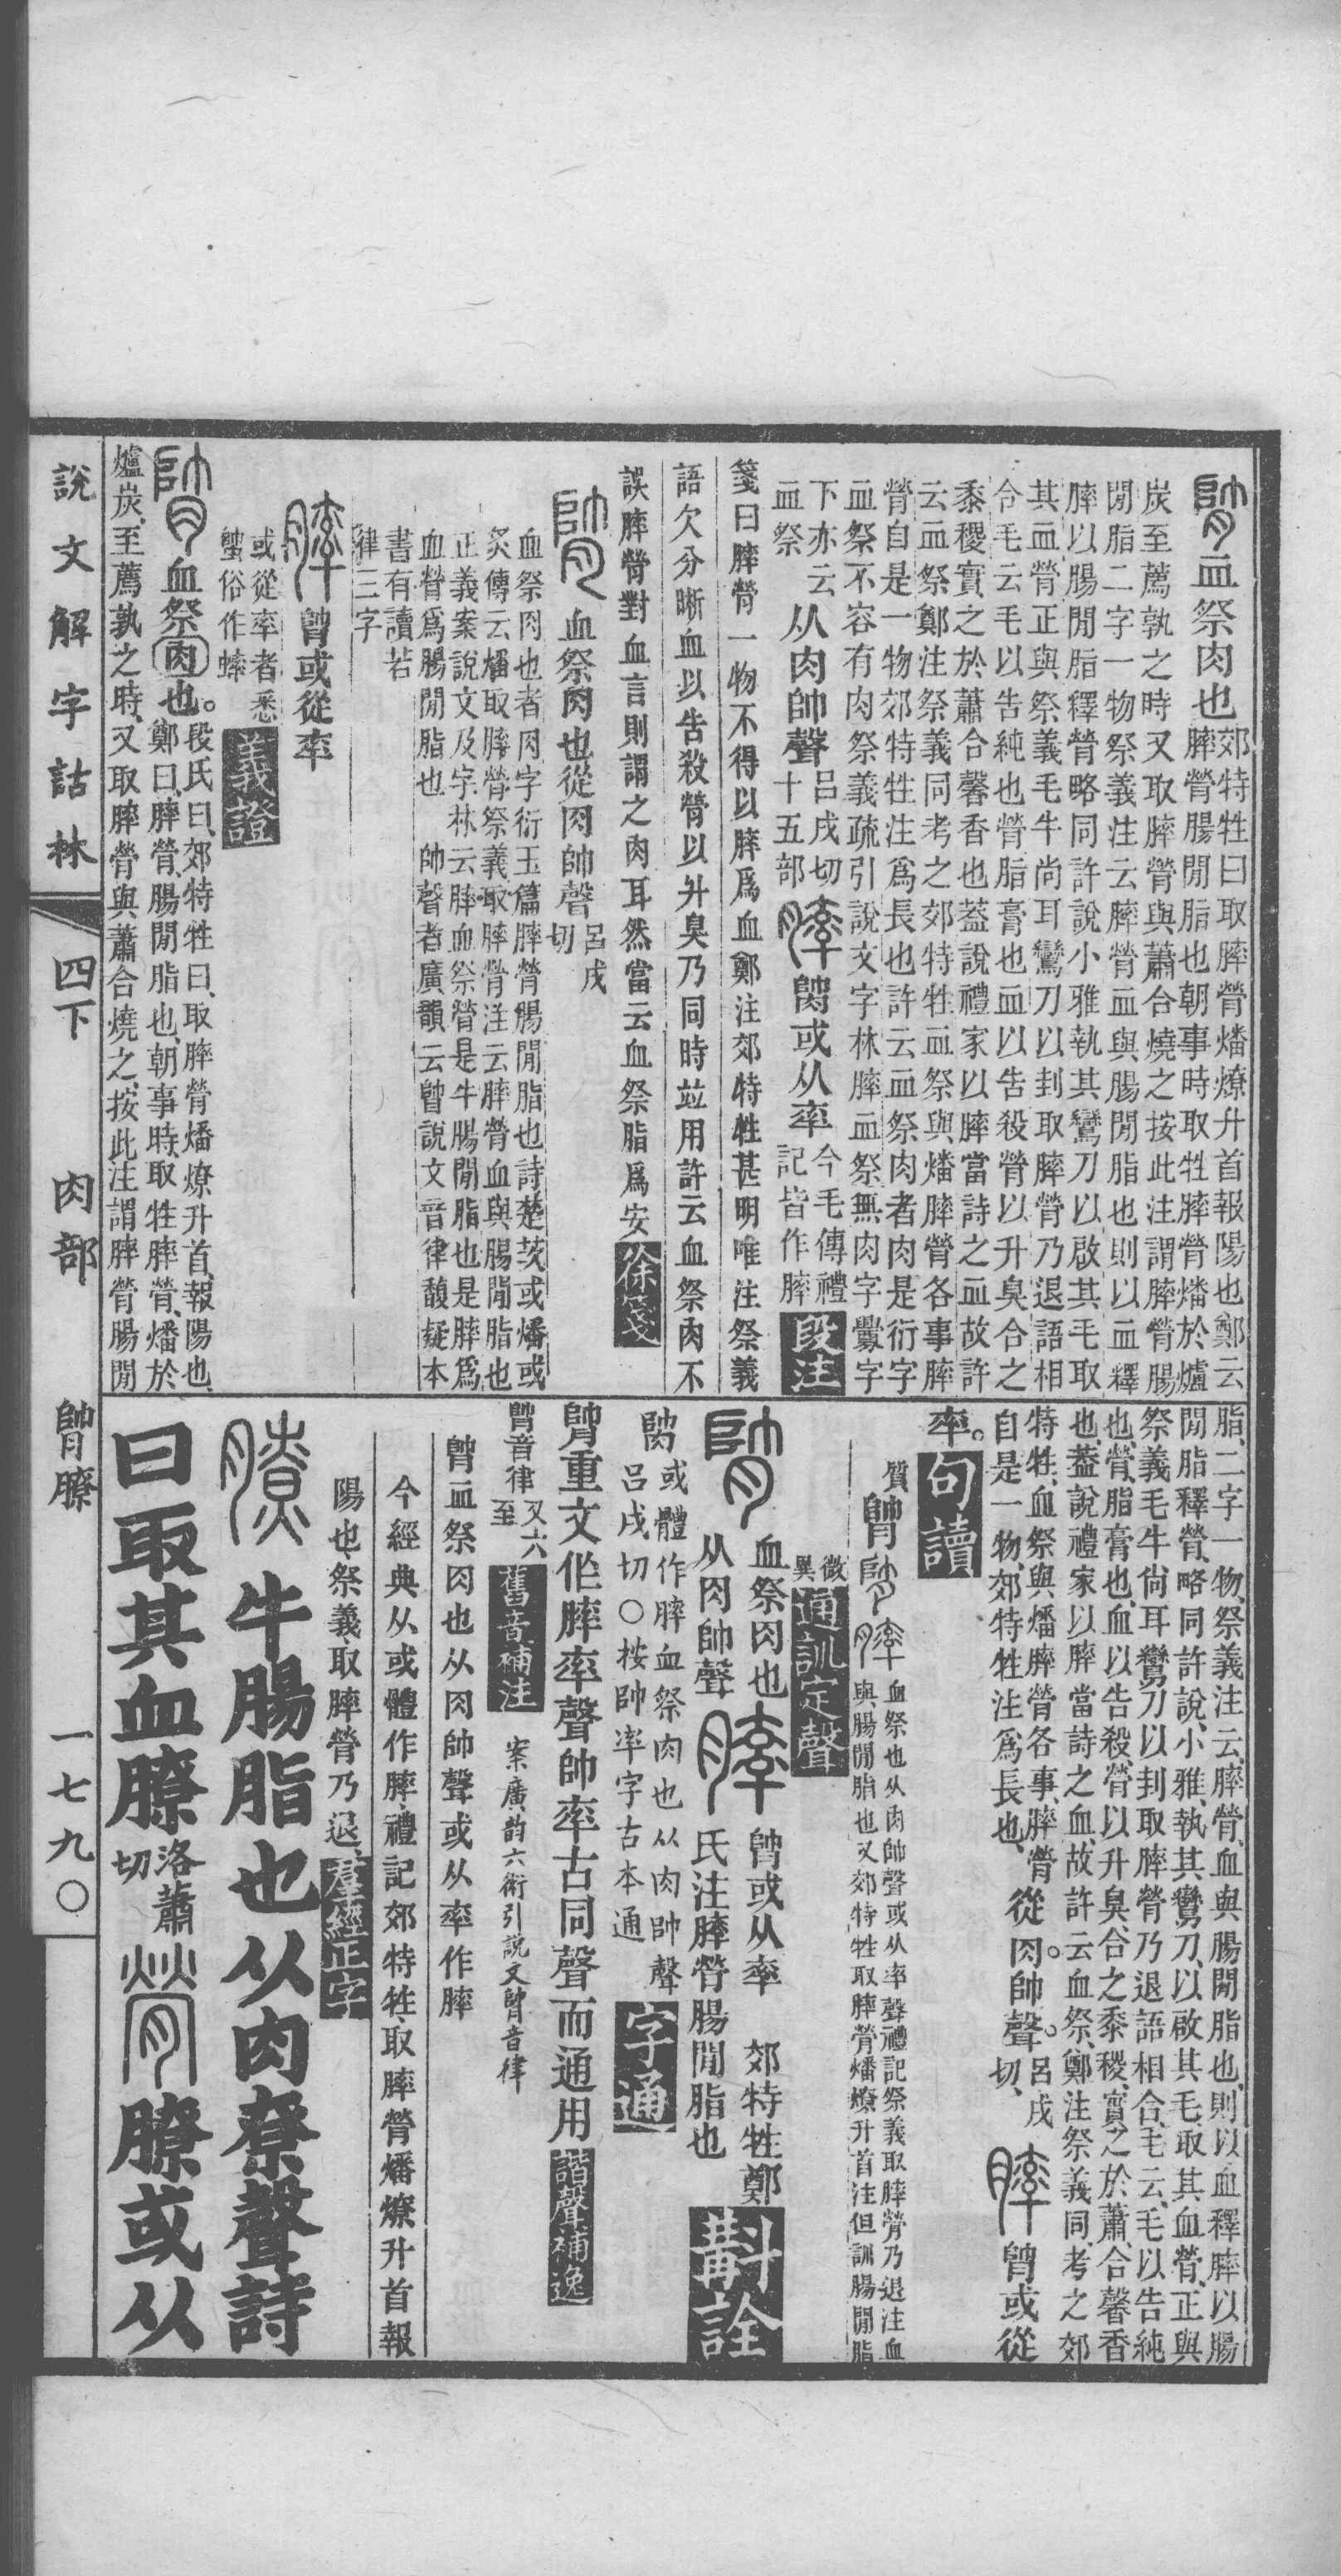 膟血祭肉也
郊特牲曰取膟膋燔燎升首報陽也鄭云
膟膋腸閒脂也朝事時取牲膟膋燔於爐
炭至薦孰之時又取膟膋與蕭合燒之按此注謂膟膋腸
閒脂二字一物祭義注云膟膋血與腸閒脂也則以血釋
膟以腸閒脂釋膋略同許說小雅執其鸞刀以啟其毛取
其血膋正與祭義毛牛尚耳鸞刀以刲取膟膋乃退語相
合毛云毛以告純也膋脂膏也血以告殺膋以升臭合之
黍稷實之於蕭合馨香也蓋說禮家以膟當詩之血故許
云血祭鄭注祭義同考之郊特牲血祭與燔膟膋各事膟
膋自是一物郊特牲注爲長也許云血祭肉者肉是衍字
血祭不容有肉祭義疏引說文字林膟血祭無肉字釁字
下亦云
血祭
从肉帥聲
呂戌切
十五部
膟䏌或从率
今毛傳禮
記皆作膟
段注
箋曰膟膋一物不得以膟爲血鄭注郊特牲甚明唯注祭義
語欠分晰血以告殺膋以升臭乃同時竝用許云血祭肉不
誤膟膋對血言則謂之肉耳然當云血祭脂爲安
徐箋
䏌血祭肉也從肉帥聲
呂戌
切
血祭肉也者肉字衍玉篇膟膋腸閒脂也詩楚茨或燔或
炙傳云燔取膟膋祭義取膟膋注云膟膋血與腸閒脂也
正義案說文及字林云膟血祭膋是牛腸閒脂也是膟爲
血膋爲腸閒脂也　帥聲者廣韻云䏌說文音律馥疑本
書有讀若
律三字
膟䏌或從率
或從率者悉
𧍓俗作蟀
義證
䏌血祭肉也。
段氏曰郊特牲曰取膟膋燔燎升首報陽也
鄭曰膟膋腸閒脂也朝事時取牲膟膋燔於
爐炭至薦孰之時又取膟膋與蕭合燒之按此注謂膟膋腸閒
脂二字一物祭義注云膟膋血與腸閒脂也則以血釋膟以腸
閒脂釋膋略同許說小雅執其鸞刀以啟其毛取其血膋正與
祭義毛牛尙耳鸞刀以刲取膟膋乃退語相合毛云毛以告純
也膋脂膏也血以告殺膋以升臭合之黍稷實之於蕭合馨香
也蓋說禮家以膟當詩之血故許云血祭鄭注祭義同考之郊
特牲血祭與燔膟膋各事膟膋
自是一物郊特牲注爲長也
從肉帥聲。
呂戌
切
膟䏌或從
率。
句讀
質䏌䏌膟
血祭也从肉帥聲或从率聲禮記祭義取膟膋乃退注血
與腸閒脂也又郊特牲取膟膋燔燎升首注但訓腸閒脂
微
異
通訓定聲
䏌
血祭肉也
从肉帥聲
膟
䏌或从率　郊特牲鄭
氏注膟膋腸閒脂也
斠詮
䏌
或體作膟血祭肉也从肉帥聲
呂戌切〇按帥率字古本通
字通
䏌重文作膟率聲帥率古同聲而通用
諧聲補逸
䏌音律
又六
至
舊音補注
案廣韵六術引說文䏌音律
䏌血祭肉也从肉帥聲或从率作膟
今經典从或體作膟禮記郊特牲取膟膋燔燎升首報
陽也祭義取膟膋乃退
羣經正字
膫牛腸脂也从肉尞聲詩
曰取其血膫
洛蕭
切
膋膫或从
說文解字詁林
四下　肉部　䏌膫　一七九〇